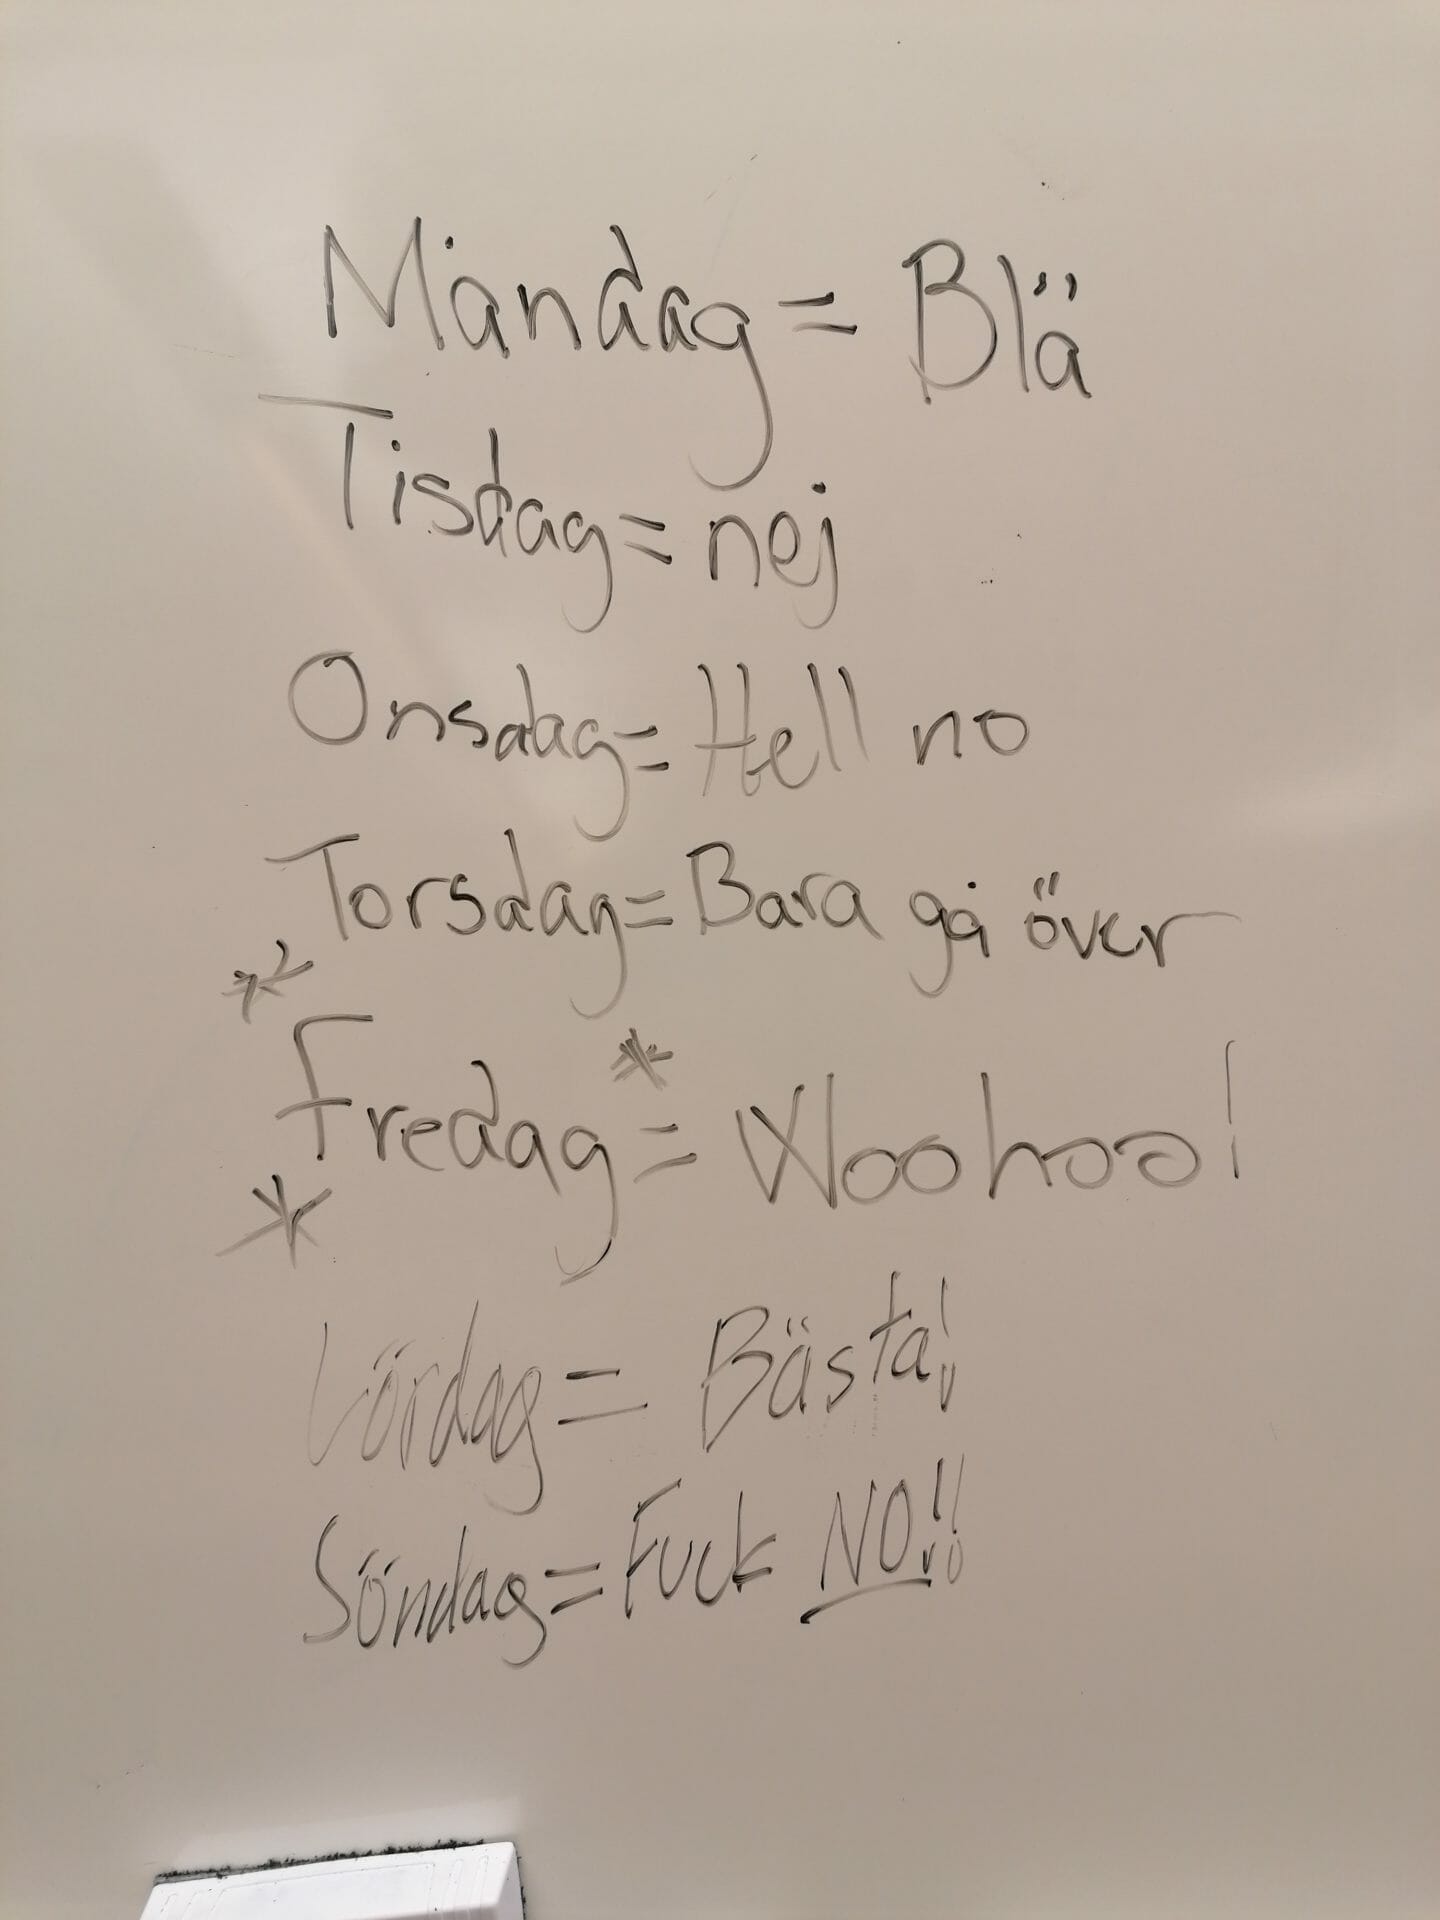 Måndag = Blä
Tisdag = nej
Onsdag = Hell no
Torsdag = Bara gå över
Fredag = Woohoo!
Lördag = Bästa!!
Söndag = Fuck NO!!